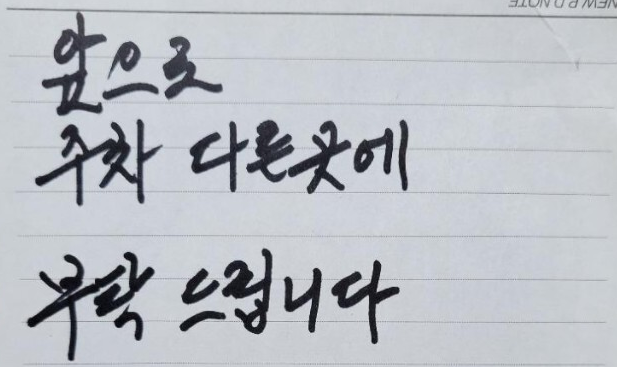 NEW P.D NOTE
앞으로
주차 다른곳에
부탁 드립니다